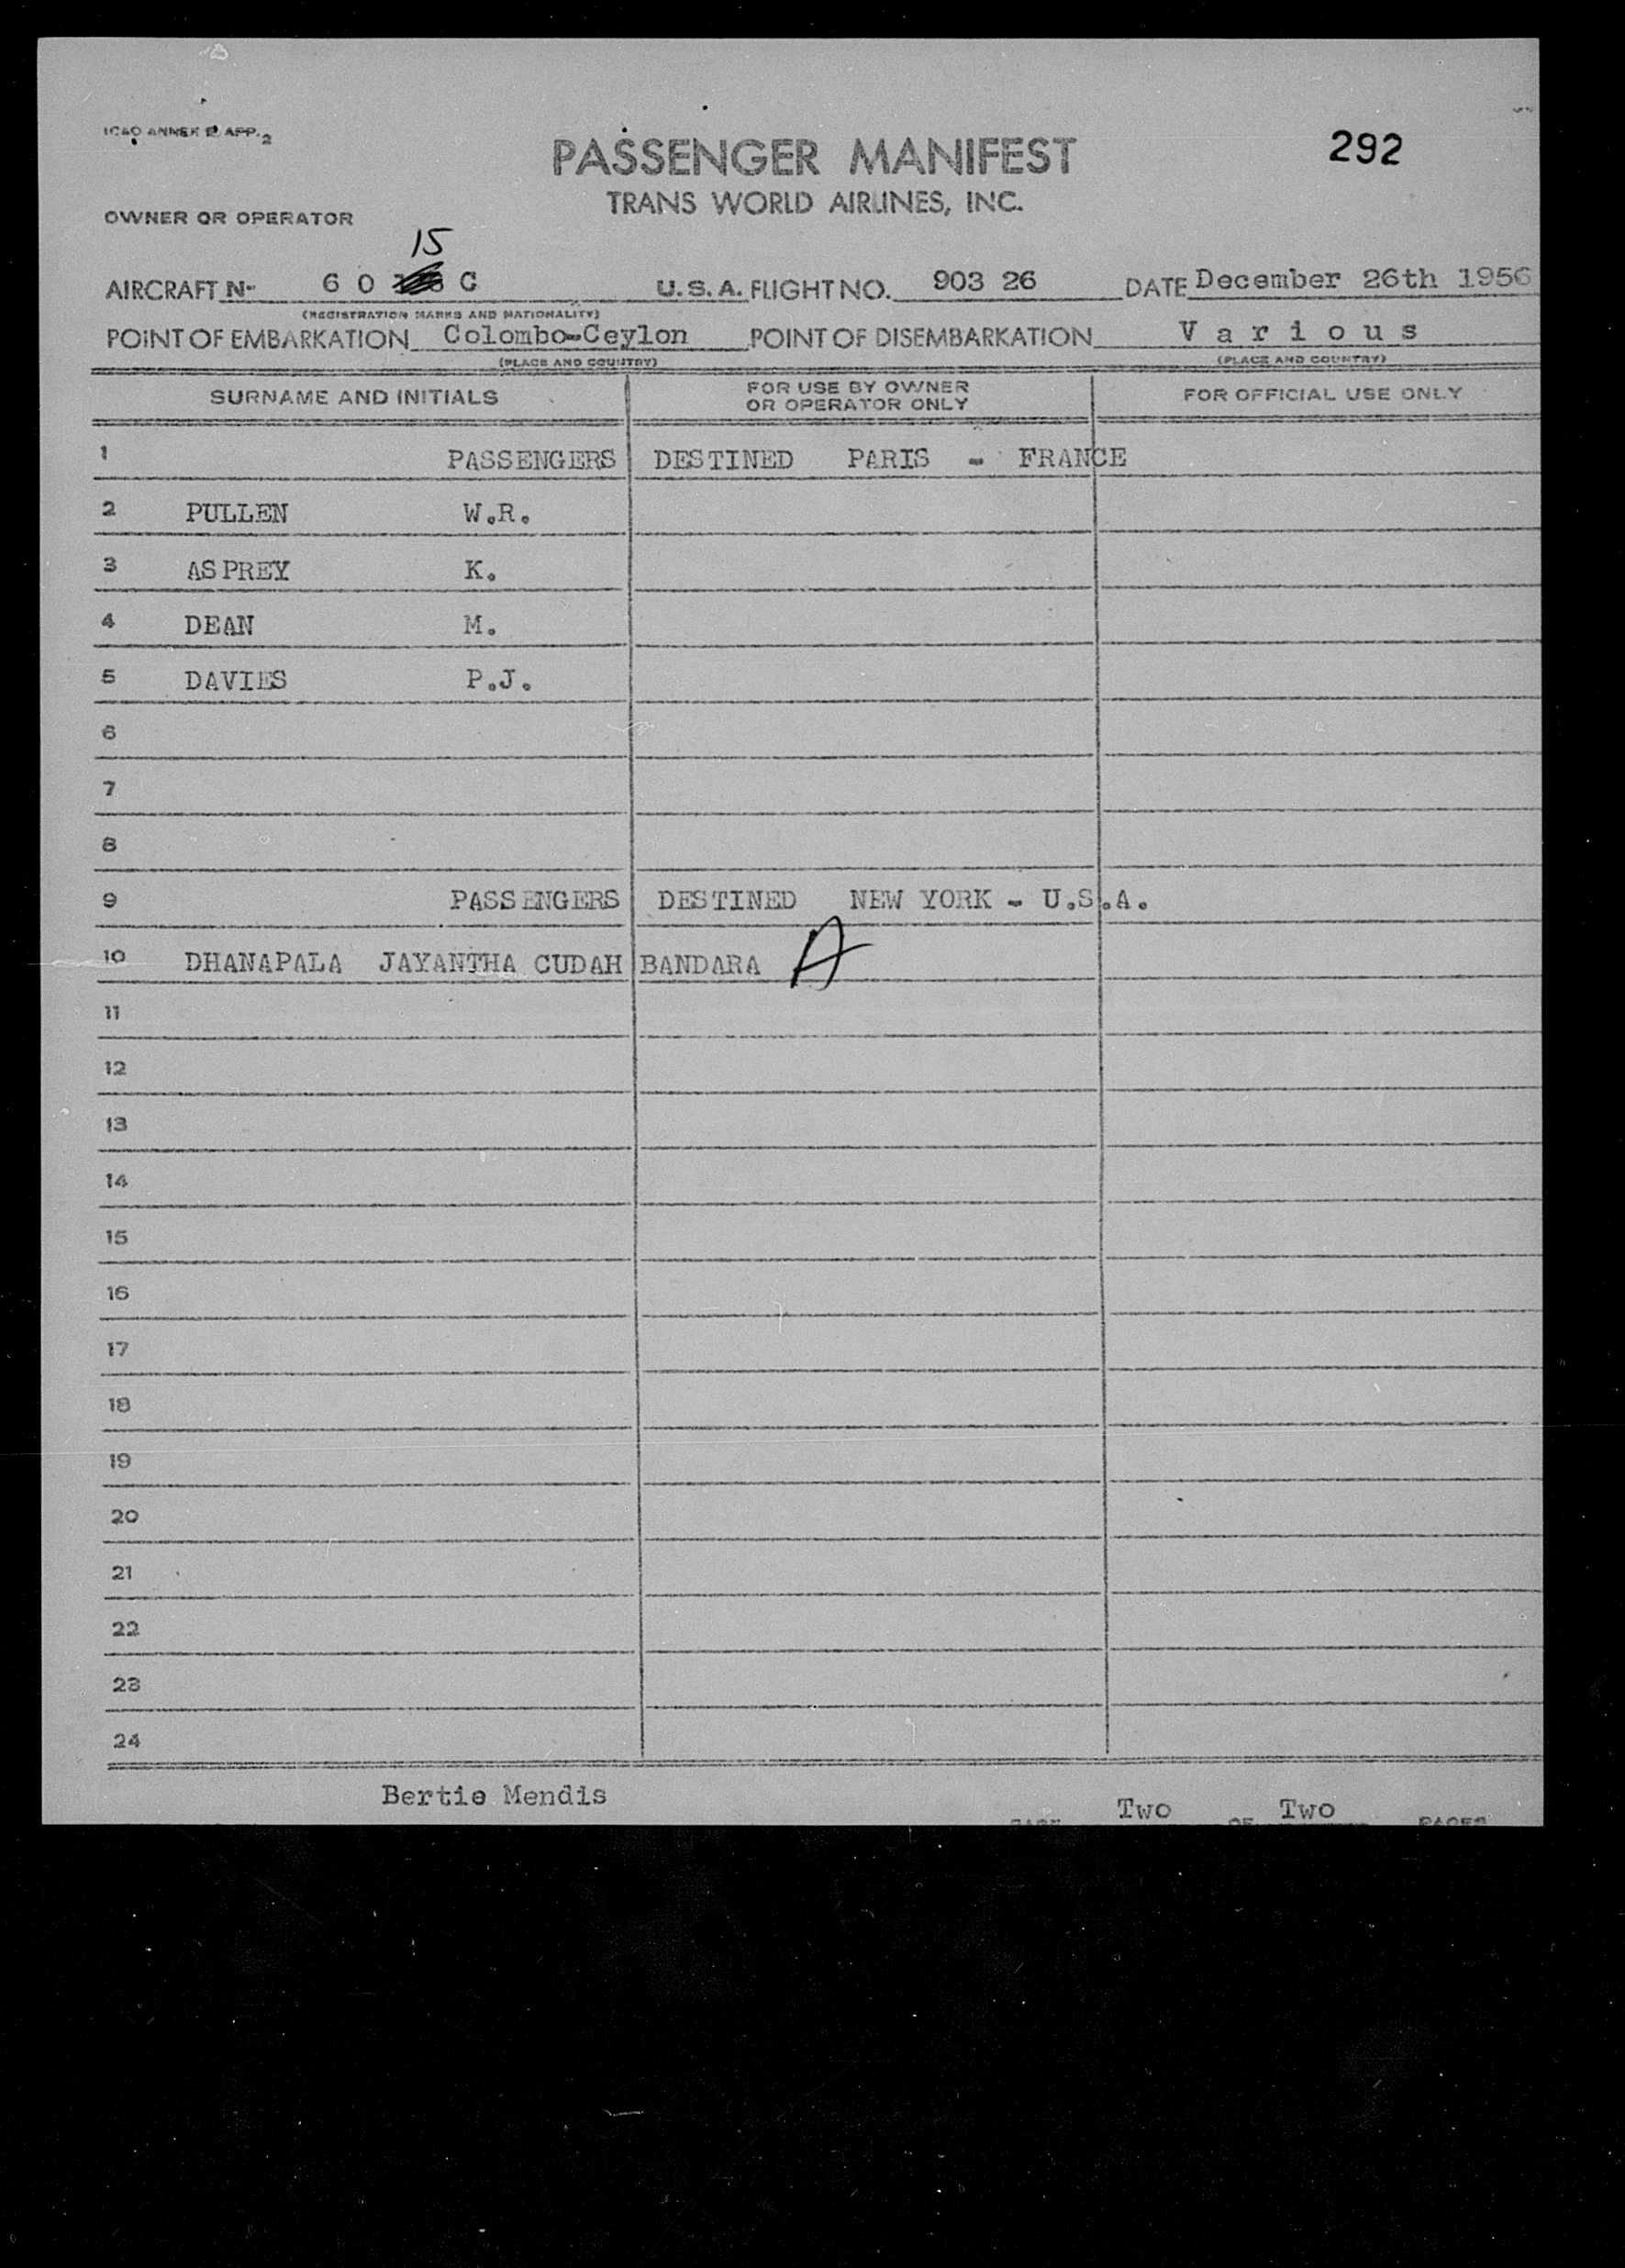 ICAO ANNEX 9 APP. 2
PASSENGER MANIFEST
292
TRANS WORLD AIRLINES, INC.
OWNER OR OPERATOR
15
AIRCRAFT No. 6 0 C U.S.A. FLIGHT NO. 903 26 DATE December 26th 1956
(REGISTRATION MARKS AND NATIONALITY)
POINT OF EMBARKATION Colombo-Ceylon POINT OF DISEMBARKATION Various
(PLACE AND COUNTRY) (PLACE AND COUNTRY)
SURNAME AND INITIALS FOR USE BY OWNER OR OPERATOR ONLY FOR OFFICIAL USE ONLY
1 PASSENGERS DESTINED PARIS - FRANCE
2 PULLEN W.R.
3 ASPREY K.
4 DEAN M.
5 DAVIES P.J.
6
7
8
9 PASSENGERS DESTINED NEW YORK - U.S.A.
10 DHANAPALA JAYANTHA CUDAH BANDARA A
11
12
13
14
15
16
17
18
19
20
21
22
23
24
Bertie Mendis
PAGE Two OF Two PAGES